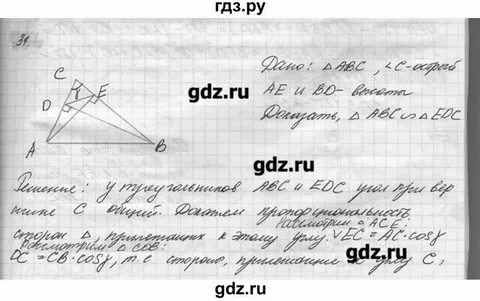 гдз.ру
31.
C
D
γ
E
A
B
Дано: △ABC, ∠C-острый
AE и BD- высоты
Доказать, △ABC ∽ △EDC
gdz.ru
gdz.ru
gdz.ru
gdz.ru
Решение: у треугольников ABC и EDC угол при вер
шине C общий. Докажем пропорциональность
Рассмотрим △ACE.
сторон △, прилегающих к этому углу. EC = AC·cosγ
Рассмотрим △ CDB:
DC = CB·cosγ, т.е. стороны, прилегающие к углу C,
gdz.ru